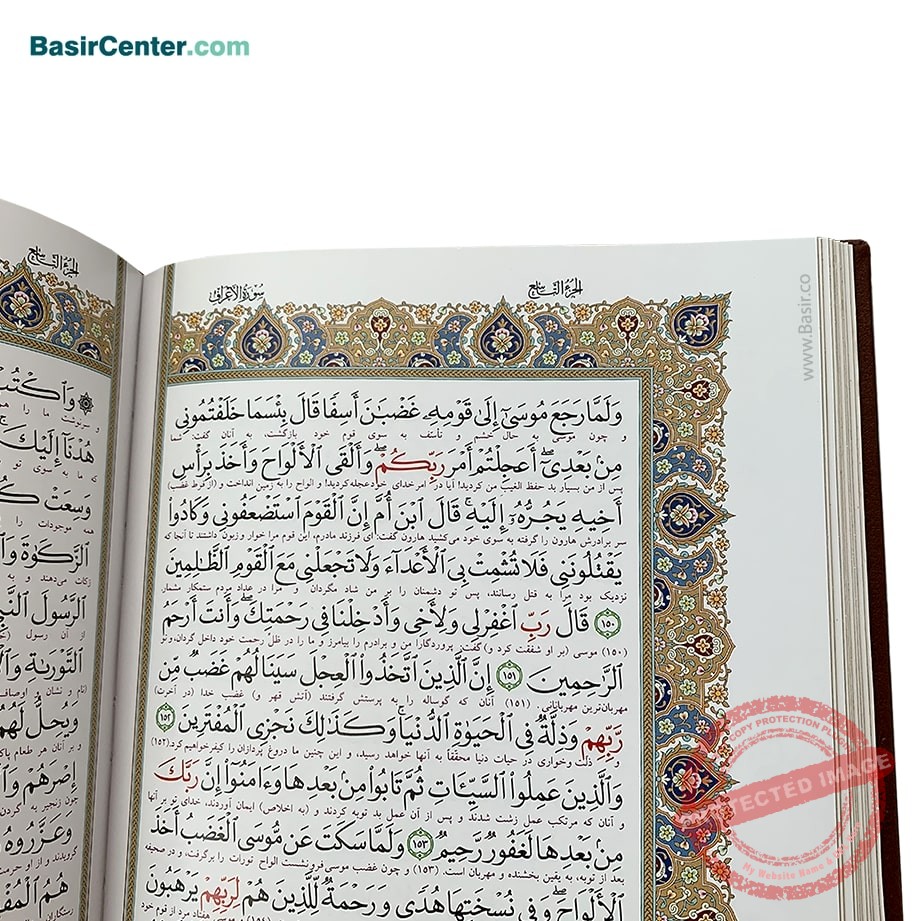 BasirCenter.com
الجزء التاسع
سورة الأعراف
www.Basir.co
وَلَمَّا رَجَعَ مُوسَىٰٓ إِلَىٰ قَوْمِهِۦ غَضْبَـٰنَ أَسِفًا قَالَ بِئْسَمَا خَلَفْتُمُونِى
و چون موسی به حال خشم و تأسف به سوی قوم خود بازگشت، به آنان گفت: شما
مِنۢ بَعْدِىٓ ۖ أَعَجِلْتُمْ أَمْرَ رَبِّكُمْ ۖ وَأَلْقَى ٱلْأَلْوَاحَ وَأَخَذَ بِرَأْسِ
پس از من بسیار بد حفظ الغیب من کردید! آیا در امر خدای خود عجله کردید! و الواح را به زمین انداخت و (از فرط غضب)
أَخِيهِ يَجُرُّهُۥٓ إِلَيْهِ ۚ قَالَ ٱبْنَ أُمَّ إِنَّ ٱلْقَوْمَ ٱسْتَضْعَفُونِى وَكَادُوا۟
سر برادرش هارون را گرفته به سوی خود می‌کشید، هارون گفت: ای فرزند مادرم، این قوم مرا خوار و زبون داشتند تا آنجا که
يَقْتُلُونَنِى فَلَا تُشْمِتْ بِىَ ٱلْأَعْدَآءَ وَلَا تَجْعَلْنِى مَعَ ٱلْقَوْمِ ٱلظَّـٰلِمِينَ
نزدیک بود مرا به قتل رسانند، پس تو دشمنان را بر من شاد مگردان و مرا در عداد مردم ستمکار مشمار
﴿١٥٠﴾ قَالَ رَبِّ ٱغْفِرْ لِى وَلِأَخِى وَأَدْخِلْنَا فِى رَحْمَتِكَ ۖ وَأَنتَ أَرْحَمُ
(۱۵۰) موسی (بر او شفقت کرد و) گفت: پروردگارا من و برادرم را بیامرز و ما را در ظل رحمت خود داخل گردان، و تو
ٱلرَّٰحِمِينَ ﴿١٥١﴾ إِنَّ ٱلَّذِينَ ٱتَّخَذُوا۟ ٱلْعِجْلَ سَيَنَالُهُمْ غَضَبٌ مِّن
مهربان‌ترین مهربانانی. (۱۵۱) آنان که گوساله را به پرستش گرفتند (آتش قهر و) غضب خدا (در آخرت)
رَّبِّهِمْ وَذِلَّةٌ فِى ٱلْحَيَوٰةِ ٱلدُّنْيَا ۚ وَكَذَٰلِكَ نَجْزِى ٱلْمُفْتَرِينَ ﴿١٥٢﴾
و ذلت و خواری در حیات دنیا محققاً به آنها خواهد رسید، و این چنین ما دروغ پردازان را کیفر خواهیم کرد. (۱۵۲)
وَٱلَّذِينَ عَمِلُوا۟ ٱلسَّيِّـَٔاتِ ثُمَّ تَابُوا۟ مِنۢ بَعْدِهَا وَءَامَنُوٓا۟ إِنَّ رَبَّكَ
و آنان که مرتکب عمل زشت شدند و پس از آن عمل بد توبه کردند و (به اخلاص) ایمان آوردند، خدای تو بر آنها
مِنۢ بَعْدِهَا لَغَفُورٌ رَّحِيمٌ ﴿١٥٣﴾ وَلَمَّا سَكَتَ عَن مُّوسَى ٱلْغَضَبُ أَخَذَ
بعد از توبه، به یقین بخشنده و مهربان است. (۱۵۳) و چون غضب موسی فرونشست الواح تورات را برگرفت، و در صحیفه
ٱلْأَلْوَاحَ ۖ وَفِى نُسْخَتِهَا هُدًى وَرَحْمَةٌ لِّلَّذِينَ هُمْ لِرَبِّهِمْ يَرْهَبُونَ
الجزء التاسع
وَٱكْتُبْ
و سرنوشت ما را
هُدْنَآ إِلَيْكَ
که ما به سوی تو
وَسِعَتْ
همه موجودات را
ٱلزَّكَوٰةَ
زکات می‌دهند و به
ٱلرَّسُولَ
از آن رسول
ٱلتَّوْرَىٰةِ
نام و نشان و اوصاف
وَيُحِلُّ لَهُمُ
و بر آنان هر طعام
إِصْرَهُمْ
چون زنجیر به گردن
وَعَزَّرُوهُ
گرویدند و از او حرمت
هُمُ
رستگاران
COPY PROTECTION PLUGIN
PROTECTED IMAGE
My Website Name &